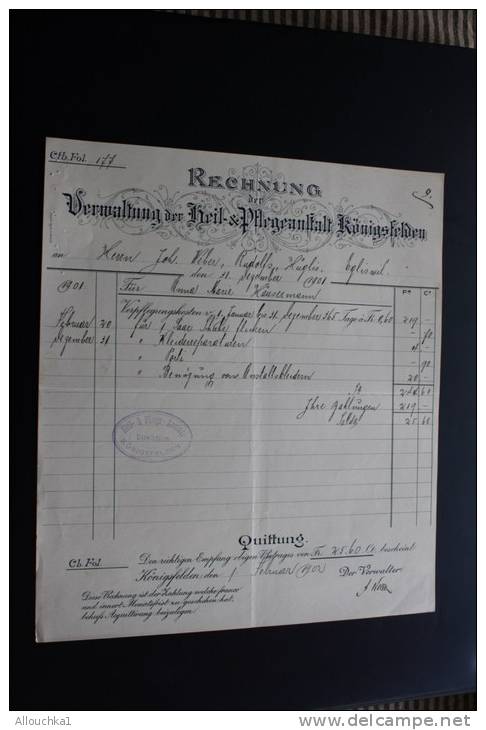 Ctb. Fol. 177
RECHNUNG
9.
der
Verwaltung der Heil- & Pflegeanstalt Königsfelden
an Herrn Joh. Weber, Rudolfs, Egliswil.
den 31 Dezember 1901
1901 Für Anna Marie Fr. Ct.
Verpflegungskosten v. 1. Januar bis 31. Dezember 365 Tage à Fr. 0,60 219 –
Februar 20 für 1 Paar Schuhe flicken – 70
Dezember 31 " Kleiderreparaturen
" Porti – 90
" Benützung von Anstaltskleidern 20 –
Fr. 244 60
Ihre Zahlungen 219 –
Saldo 25 60
KÖNIGSFELDEN
Quittung.
Cb. Fol.
Den richtigen Empfang obigen Betrages von Fr. 25.60 Ct. bescheint
Königsfelden, den 1 Februar 1902
Der Verwalter:
Diese Rechnung ist der Zahlung welche franco
und innert Monatsfrist zu geschehen hat,
behufs Acquittirung beizulegen.
Allouchka1
http://www.delcampe.net